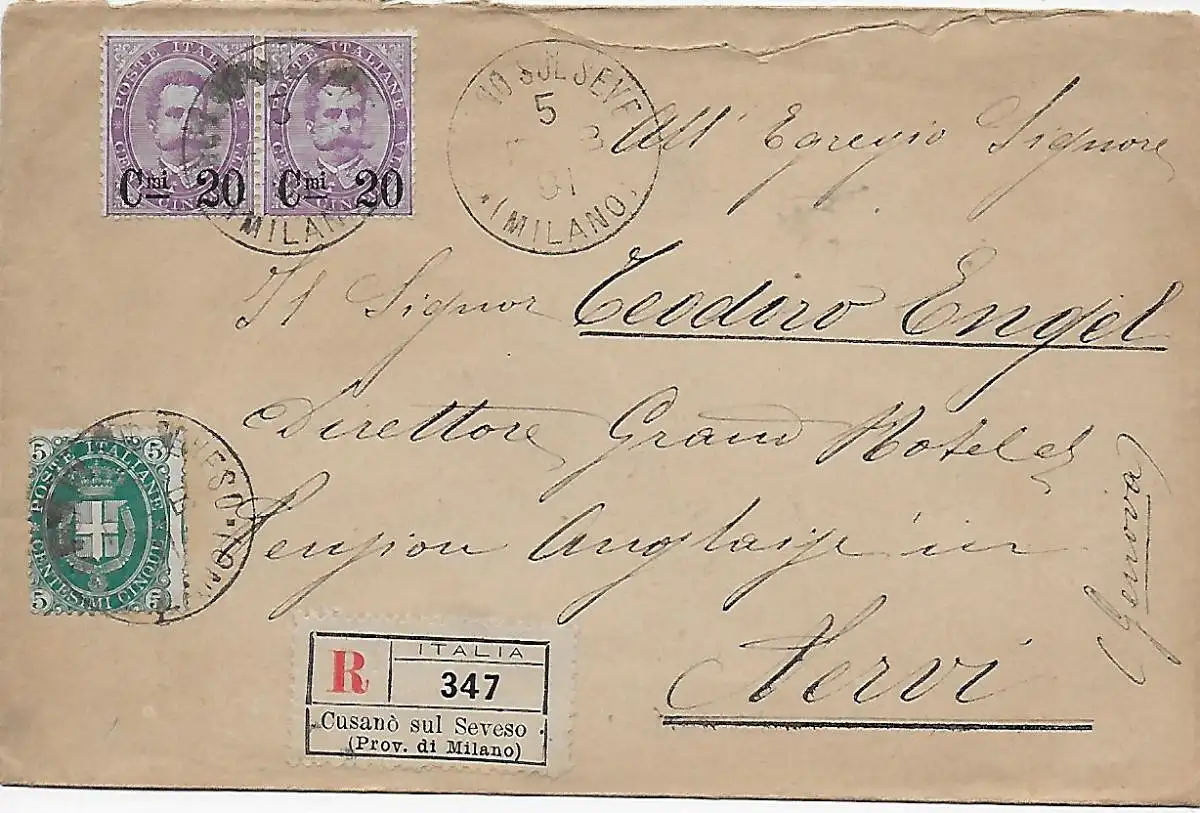 POSTE ITALIANE
POSTE ITALIANE
Cmi 20
Cmi 20
(MILANO)
NO SUL SEVE
5
8
91
(MILANO)
All' Egregio Signore
Il Signor Teodoro Engel
Direttore Grand Hotel et
Pension Anglaise in
Nervi
(Genova)
5 5
POSTE ITALIANE
CENTESIMI CINQUE
5 5
SEVESO
R
ITALIA
347
Cusanò sul Seveso
(Prov. di Milano)